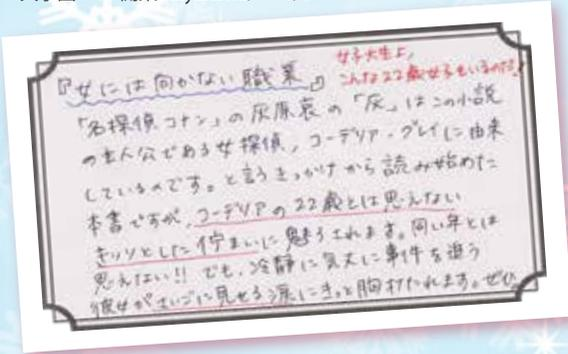 『女には向かない職業』
女子大生よ,
こんな22歳女子もいるのだ!
「名探偵コナン」の灰原哀の「灰」はこの小説
の主人公である女探偵,コーデリア・グレイに由来
しているのです。と言うきっかけから読み始めた
本書ですが,コーデリアの22歳とは思えない
きりりとした佇まいに魅了されます。同い年とは
思えない!!でも,冷静に気丈に事件を追う
彼女がさいごに見せる涙にきっと胸打たれます。ぜひ